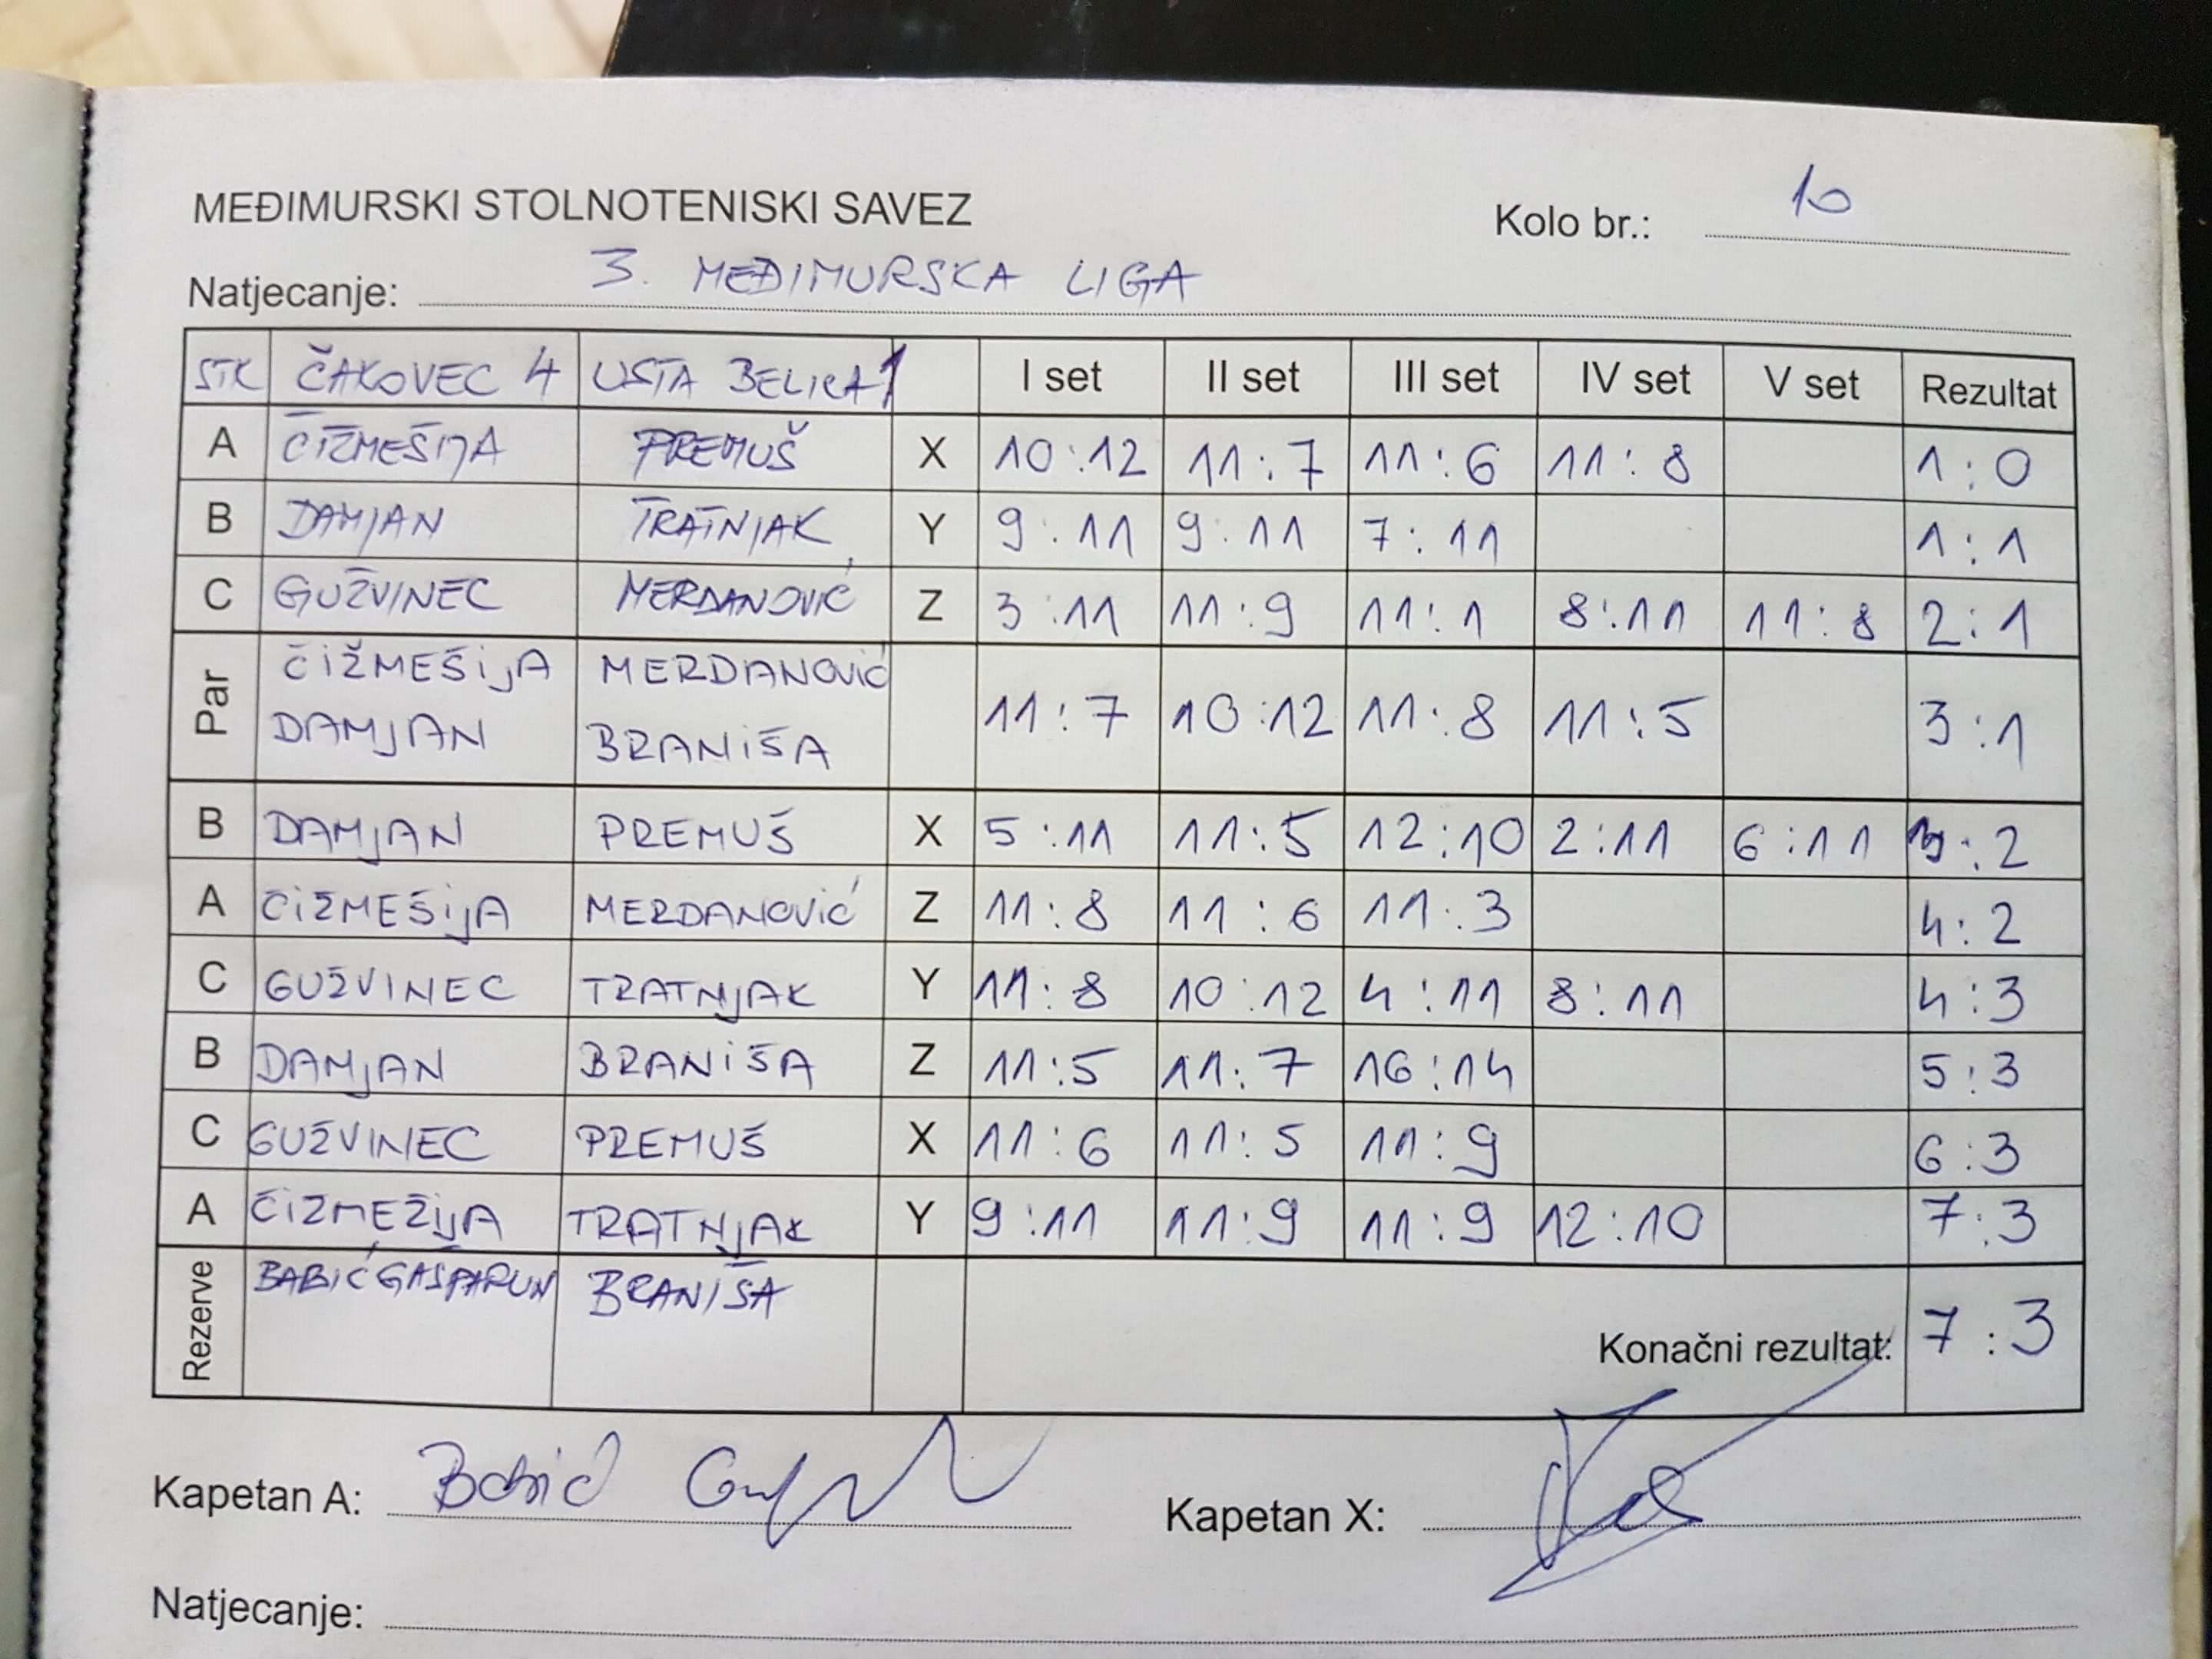 MEĐIMURSKI STOLNOTENISKI SAVEZ Kolo br.: 10
Natjecanje: 3. MEĐIMURSKA LIGA
STK ČAKOVEC 4 USTA BELICA 1 I set II set III set IV set V set Rezultat
A ČIŽMEŠIJA PREMUŠ X 10:12 11:7 11:6 11:8 1:0
B DAMJAN TRATNJAK Y 9:11 9:11 7:11 1:1
C GUŽVINEC MERDANOVIĆ Z 3:11 11:9 11:1 8:11 11:8 2:1
Par ČIŽMEŠIJA MERDANOVIĆ
DAMJAN BRANIŠA 11:7 10:12 11:8 11:5 3:1
B DAMJAN PREMUŠ X 5:11 11:5 12:10 2:11 6:11 3:2
A ČIŽMEŠIJA MERDANOVIĆ Z 11:8 11:6 11:3 4:2
C GUŽVINEC TRATNJAK Y 11:8 10:12 4:11 8:11 4:3
B DAMJAN BRANIŠA Z 11:5 11:7 16:14 5:3
C GUŽVINEC PREMUŠ X 11:6 11:5 11:9 6:3
A ČIŽMEŽIJA TRATNJAK Y 9:11 11:9 11:9 12:10 7:3
Rezerve BABIĆ GAŠPARUN BRANIŠA
Konačni rezultat: 7:3
Kapetan A: Babić Kapetan X:
Natjecanje: